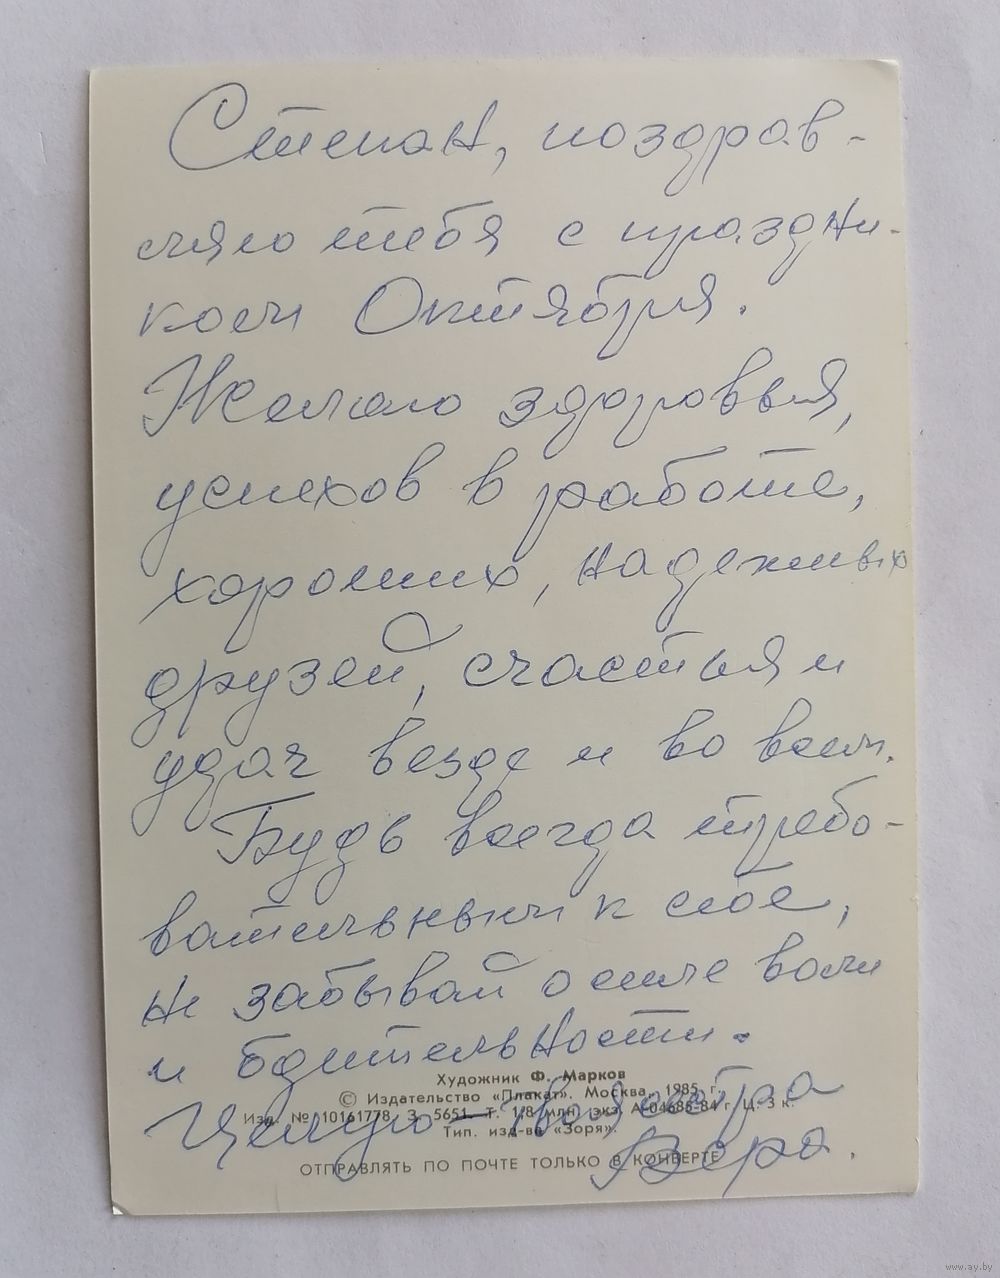 Степан, поздрав-
ляю тебя с праздни-
ком Октября.
Желаю здоровья,
успехов в работе,
хороших, надежных
друзей, счастья и
удач везде и во всем.
Будь всегда требо-
вательным к себе,
не забывай о силе воли
и бдительности.
Целую – твоя сестра
Вера.
Художник Ф. Марков
© Издательство «Плакат». Москва, 1985 г.
Изд. № 10161778. З. 5651. Т. 1,8 млн. экз. А-04685-84 г. Ц. 3 к.
Тип. изд-ва «Зоря».
ОТПРАВЛЯТЬ ПО ПОЧТЕ ТОЛЬКО В КОНВЕРТЕ
www.ay.by